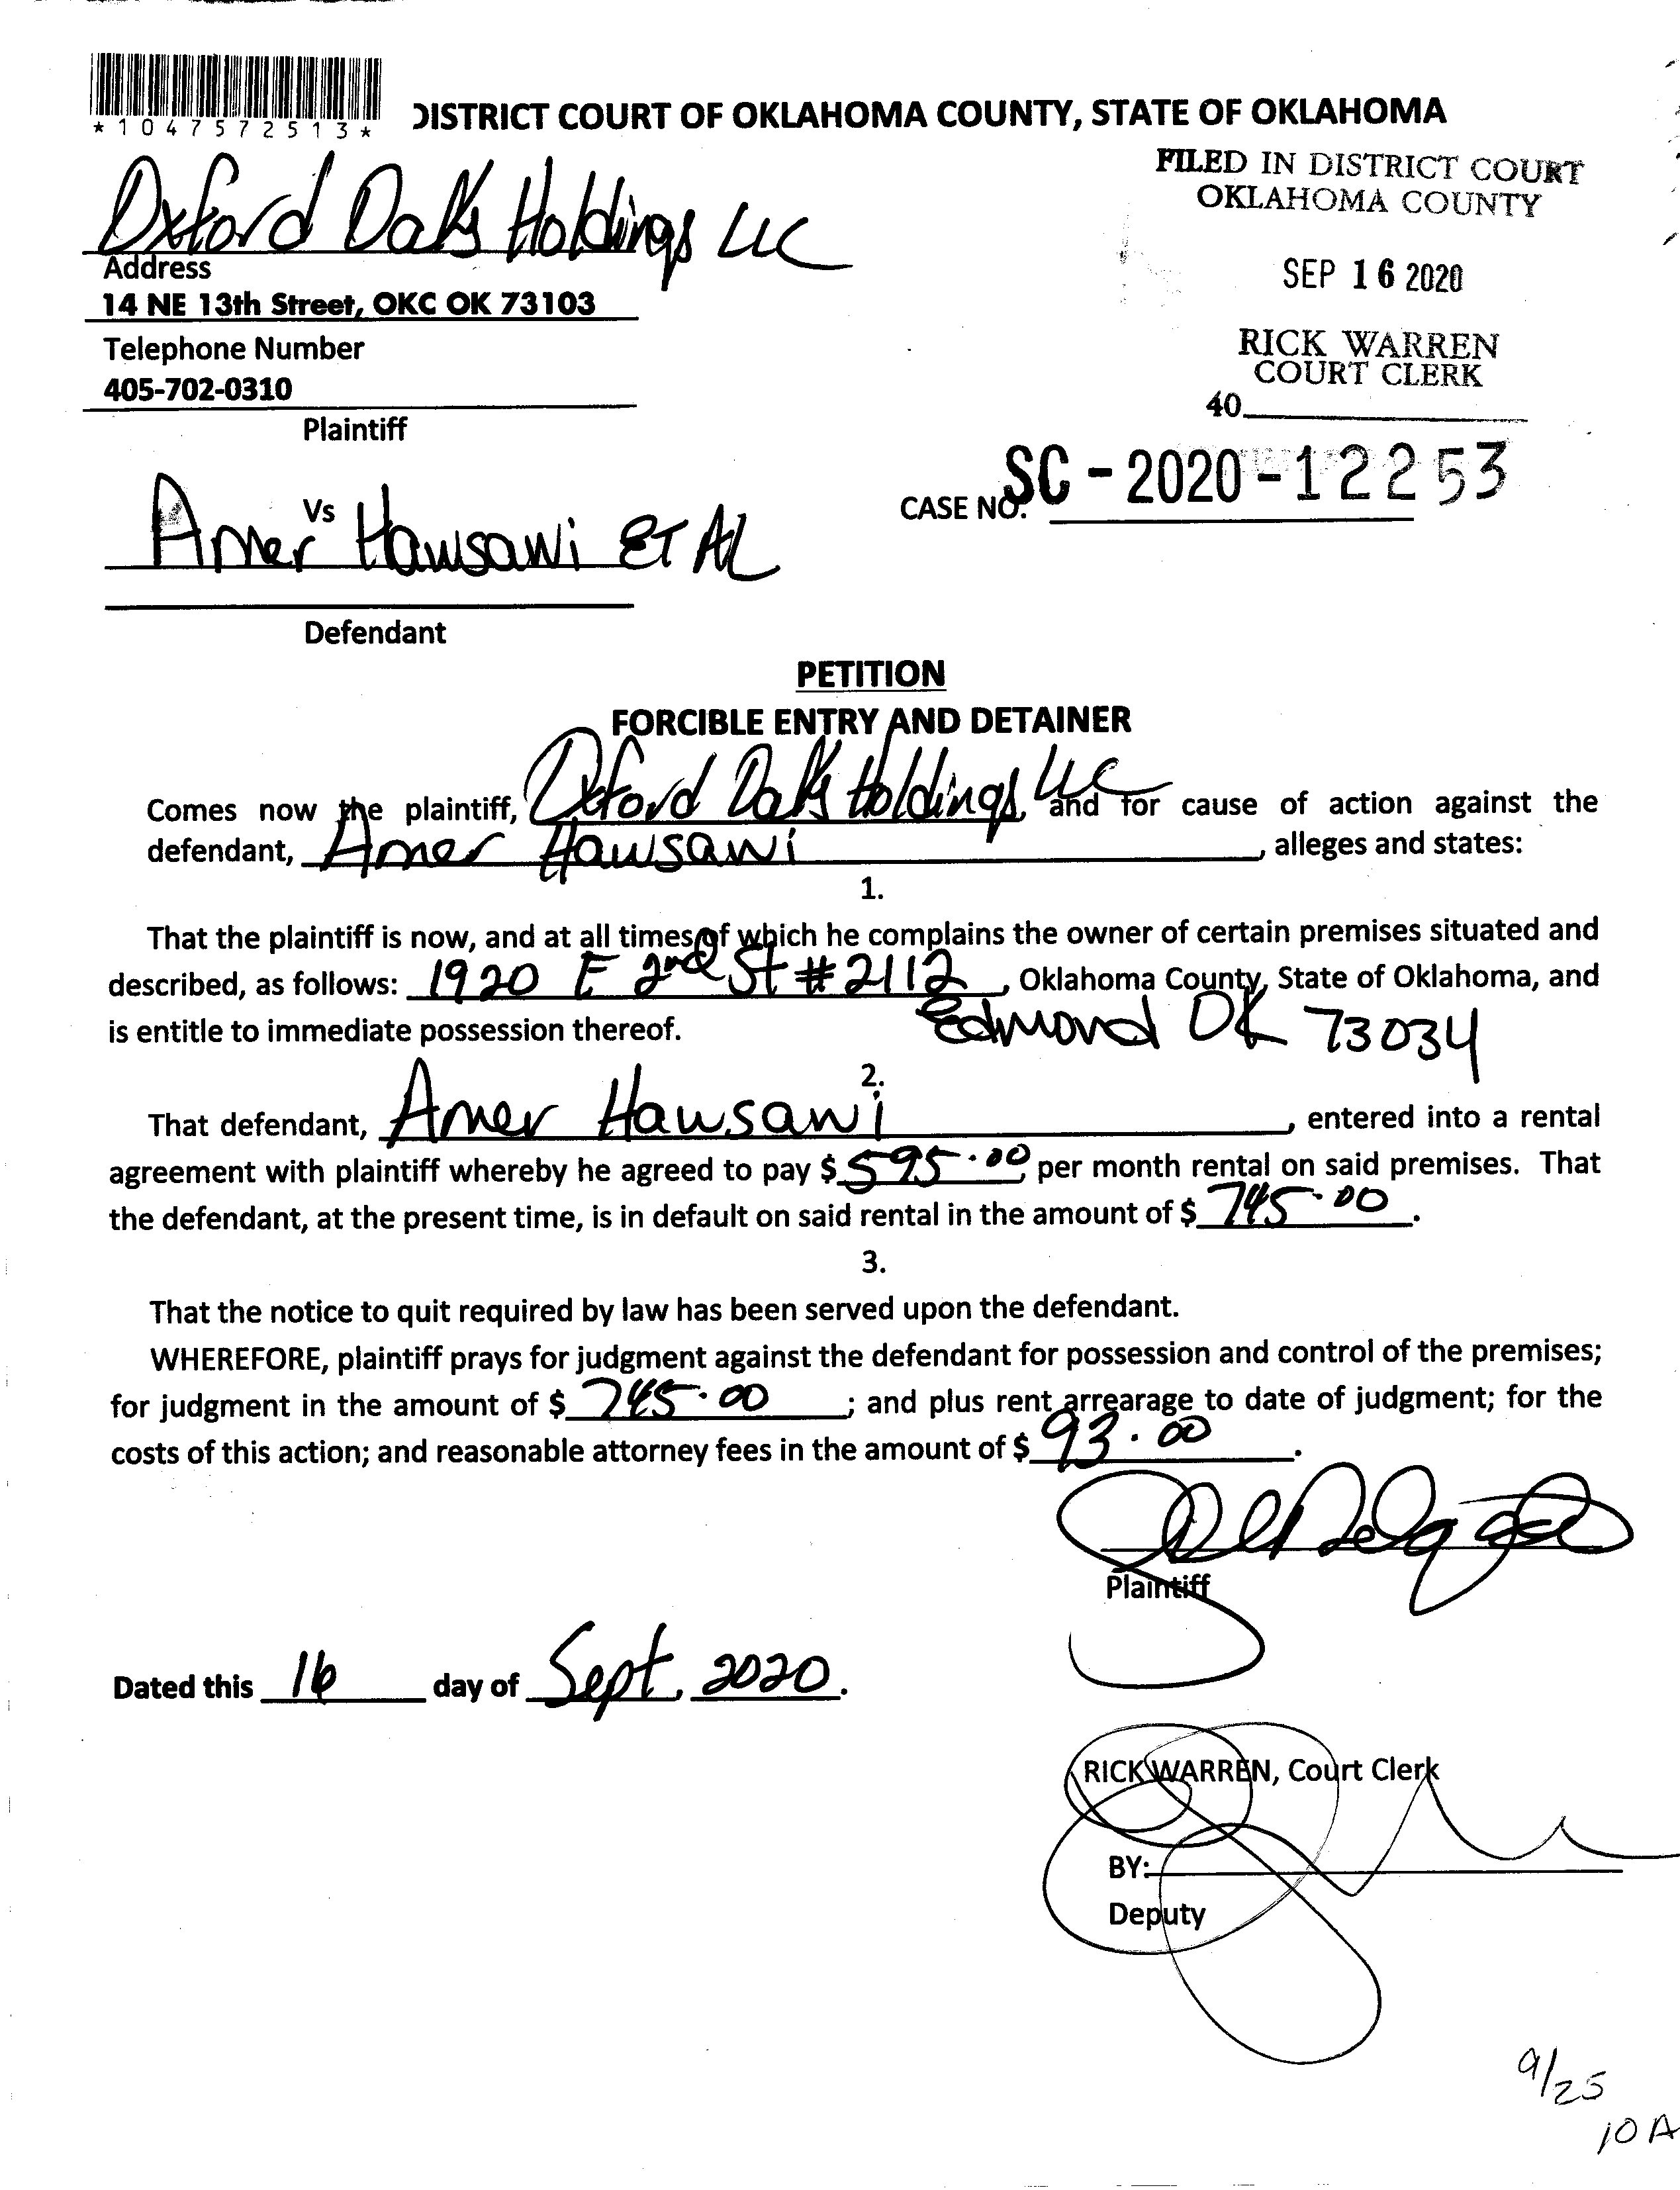 *1047572513*
DISTRICT COURT OF OKLAHOMA COUNTY, STATE OF OKLAHOMA
FILED IN DISTRICT COURT
OKLAHOMA COUNTY
SEP 16 2020
RICK WARREN
COURT CLERK
40
Oxford Oaks Holdings LLC
Address
14 NE 13th Street, OKC OK 73103
Telephone Number
405-702-0310
Plaintiff
CASE NO. SC-2020-12253
Vs
Amer Hawsawi ET AL
Defendant
PETITION
FORCIBLE ENTRY AND DETAINER
Comes now the plaintiff, Oxford Oaks Holdings, LLC and for cause of action against the
defendant, Amer Hawsawi, alleges and states:
1.
That the plaintiff is now, and at all times of which he complains the owner of certain premises situated and
described, as follows: 1920 E 2nd St #2112, Oklahoma County, State of Oklahoma, and
is entitle to immediate possession thereof. Edmond OK 73034
2.
That defendant, Amer Hawsawi, entered into a rental
agreement with plaintiff whereby he agreed to pay $ 595.00 per month rental on said premises. That
the defendant, at the present time, is in default on said rental in the amount of $ 745.00.
3.
That the notice to quit required by law has been served upon the defendant.
WHEREFORE, plaintiff prays for judgment against the defendant for possession and control of the premises;
for judgment in the amount of $ 745.00; and plus rent arrearage to date of judgment; for the
costs of this action; and reasonable attorney fees in the amount of $ 93.00.
Plaintiff
Dated this 16 day of Sept, 2020.
RICK WARREN, Court Clerk
BY:
Deputy
9/25
10A